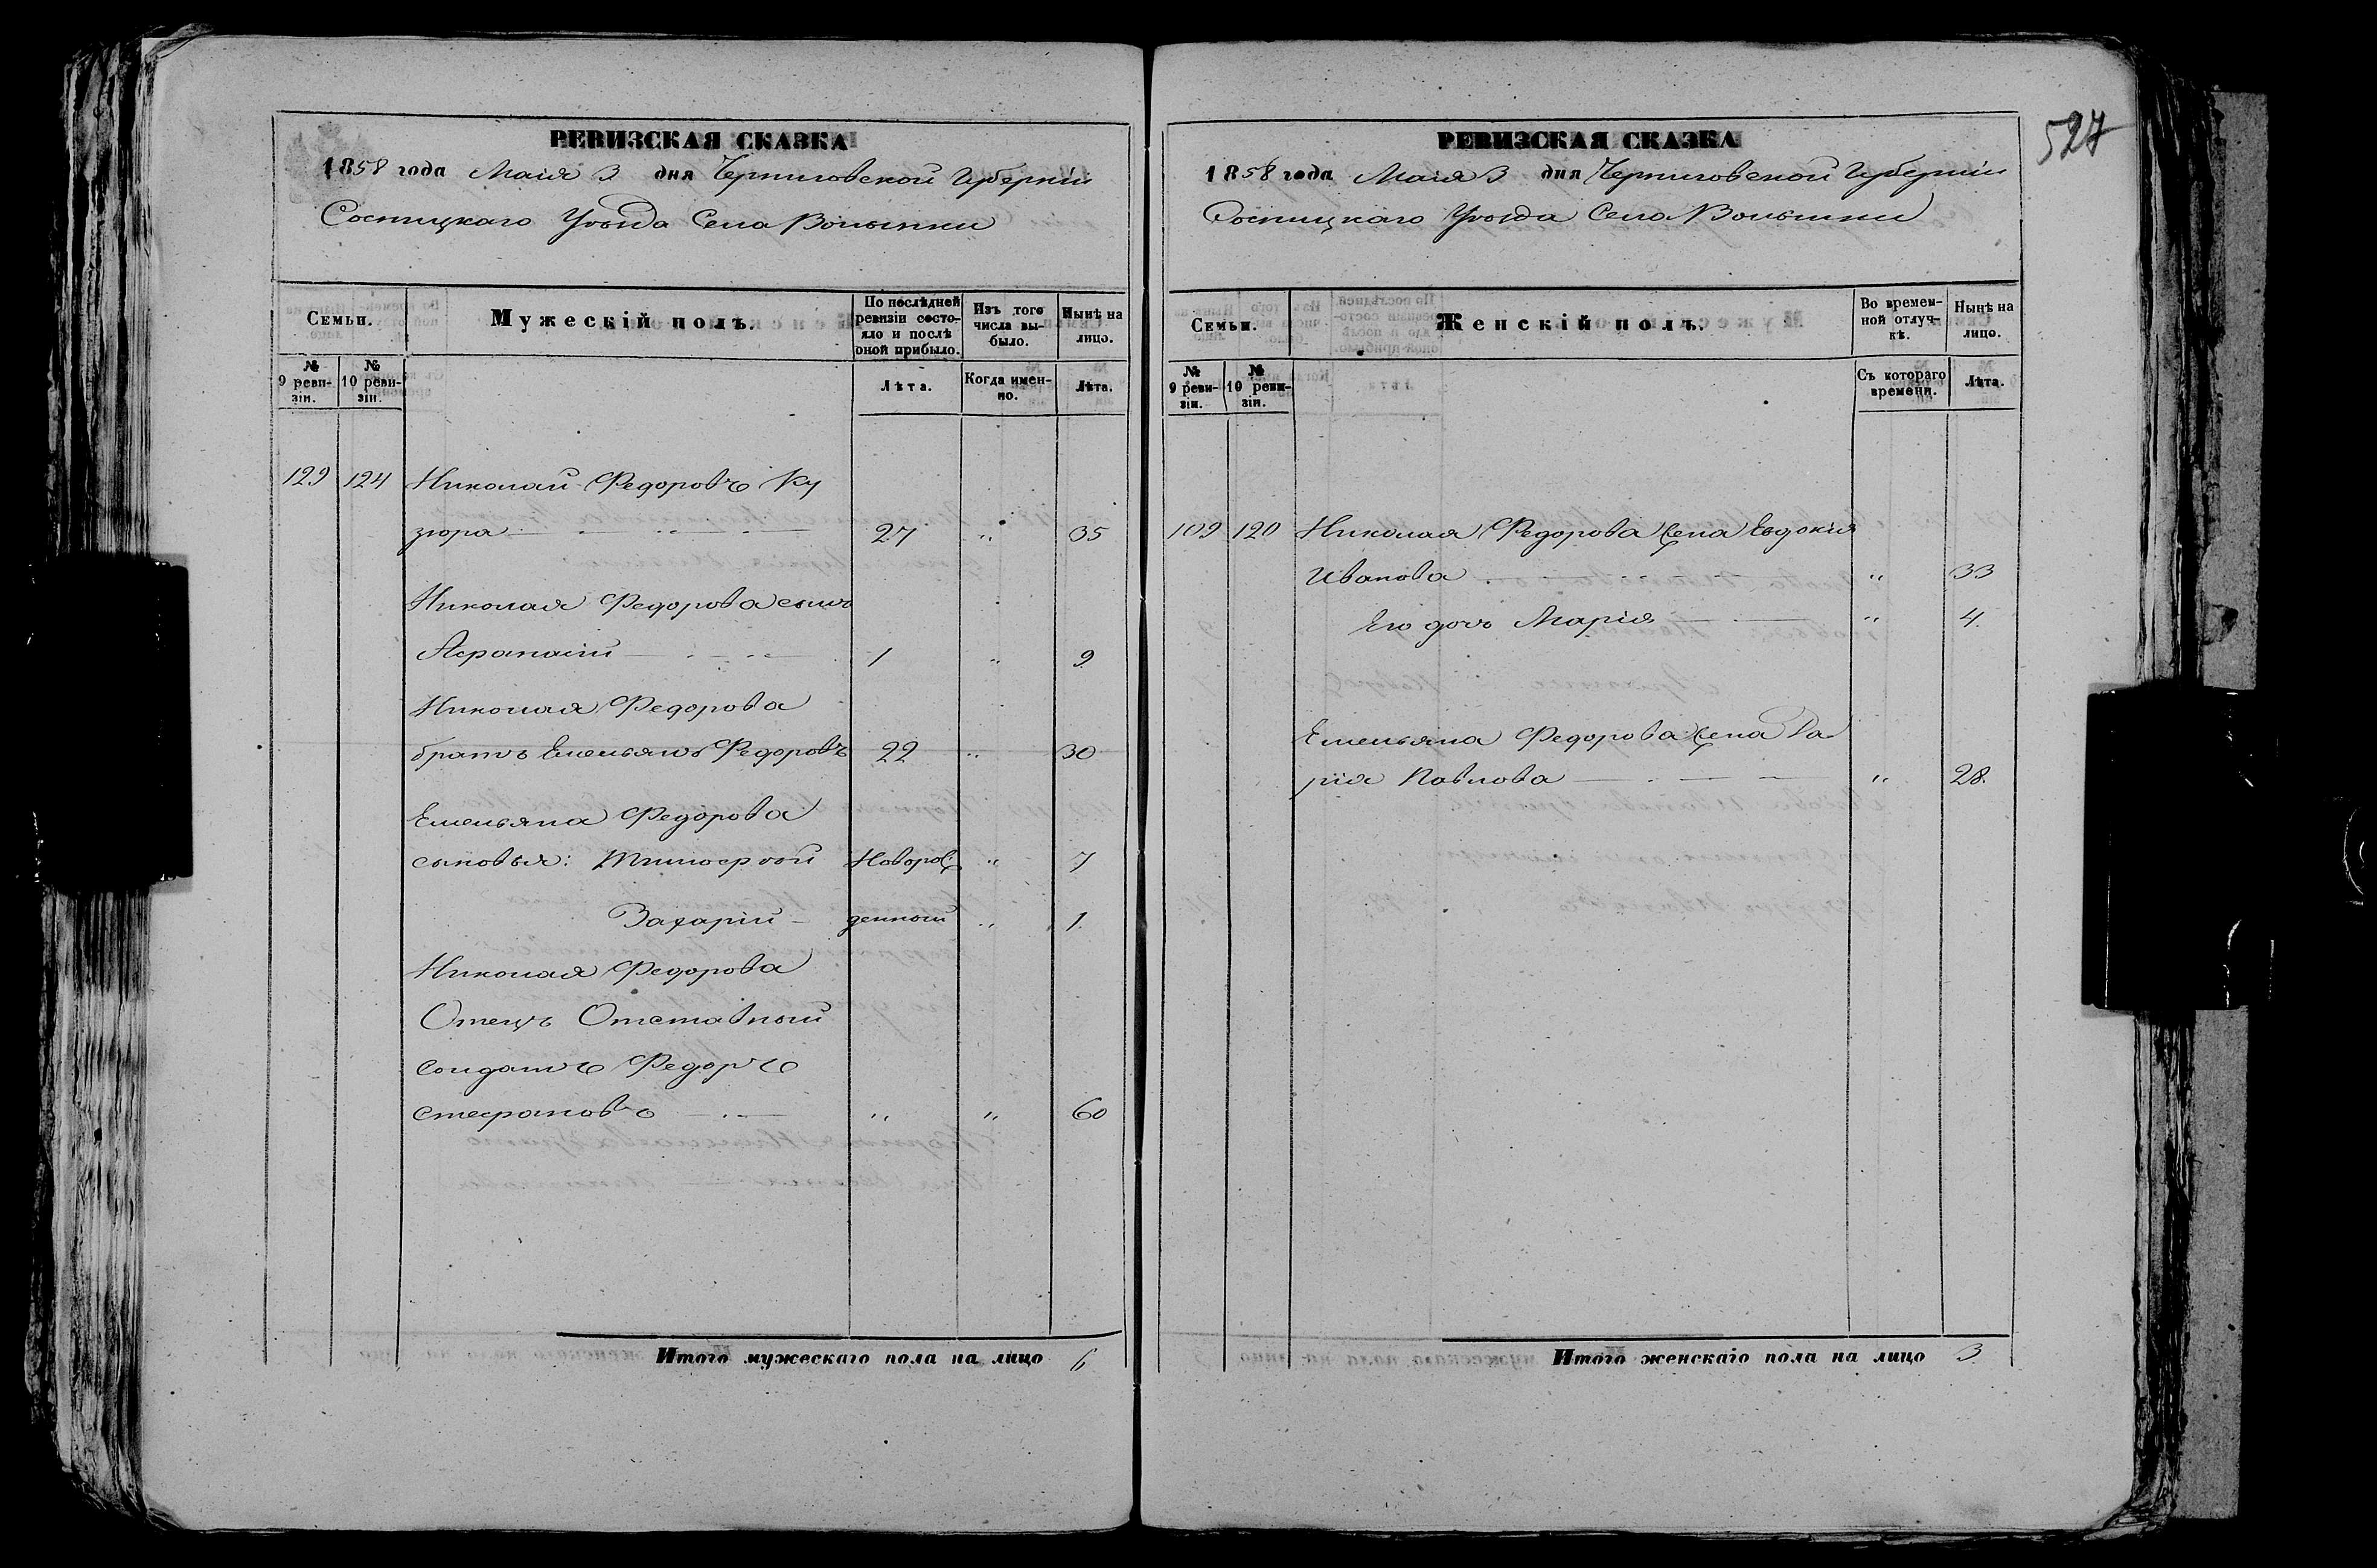 527
РЕВИЗСКАЯ СКАЗКА
1858 года Маія 3 дня Черниговской Губерніи
Сосницкаго Уѣзда Села Волынки
Семьи.
Мужескій полъ.
По послѣдней ревизіи состояло и послѣ оной прибыло.
Изъ того числа выбыло.
Нынѣ на лицо.
№ 9 ревизіи.
№ 10 ревизіи.
Лѣта.
Когда именно.
Лѣта.
129 124 Николай Федоровъ Ку
зюра 27 " 35
Николая Федорова сынъ
Афанасій 1 " 9
Николая Федорова
братъ Емельянъ Федоровъ 22 " 30
Емельяна Федорова
сыновья: Тимофѣй Новорож " 7
Захарій денный " 1
Николая Федорова
Отецъ Отставный
солдатъ Федоръ
Стефановъ " " 60
Итого мужескаго пола на лицо 6
РЕВИЗСКАЯ СКАЗКА
1858 года Маія 3 дня Черниговской Губерніи
Сосницкаго Уѣзда Села Волынки
Семьи.
Женскій полъ.
Во временной отлучкѣ.
Нынѣ на лицо.
№ 9 ревизіи.
№ 10 ревизіи.
Съ котораго времени.
Лѣта.
109 120 Николая Федорова жена Евдокія
Иванова " 33
Его дочь Марія " 4
Емельяна Федорова жена Да
рія Павлова " 28
Итого женскаго пола на лицо 3